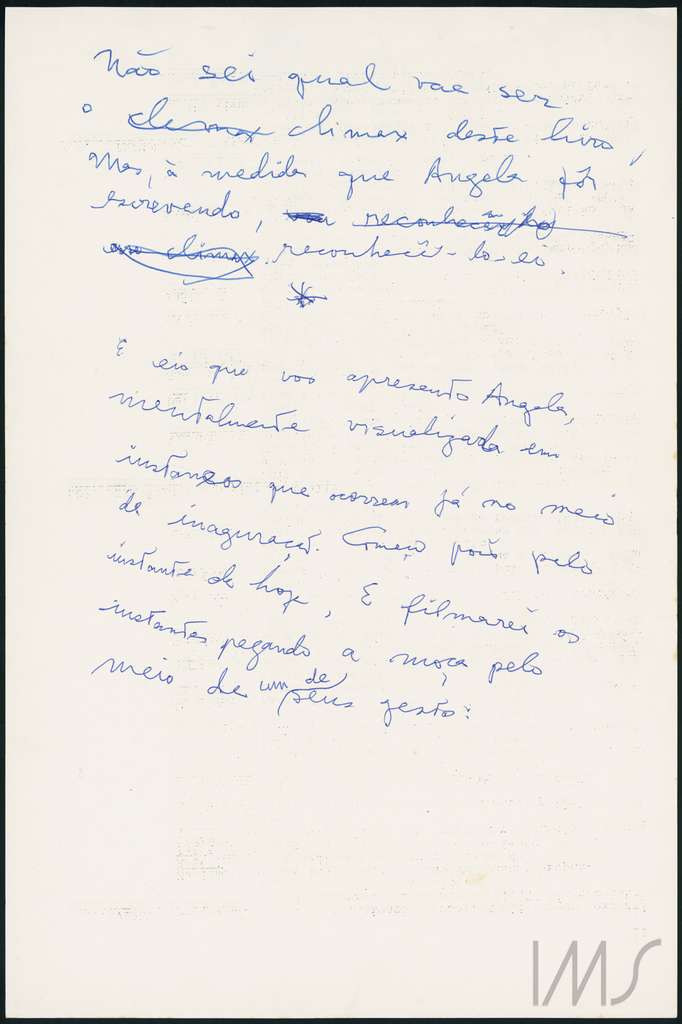 Não sei qual vae ser
o climax climax deste livro,
Mas, à medida que Angela fôr
escrevendo, reconhecê-lo
climax. reconhecê-lo-ei.
E eis que vos apresento Angela,
mentalmente visualizada em
instantes que ocorrem já no meio
da inaguração. Começo pois pelo
instante de hoje, E filmarei os
instantes pegando a moça pelo
meio de um de seus gestos:
IMS